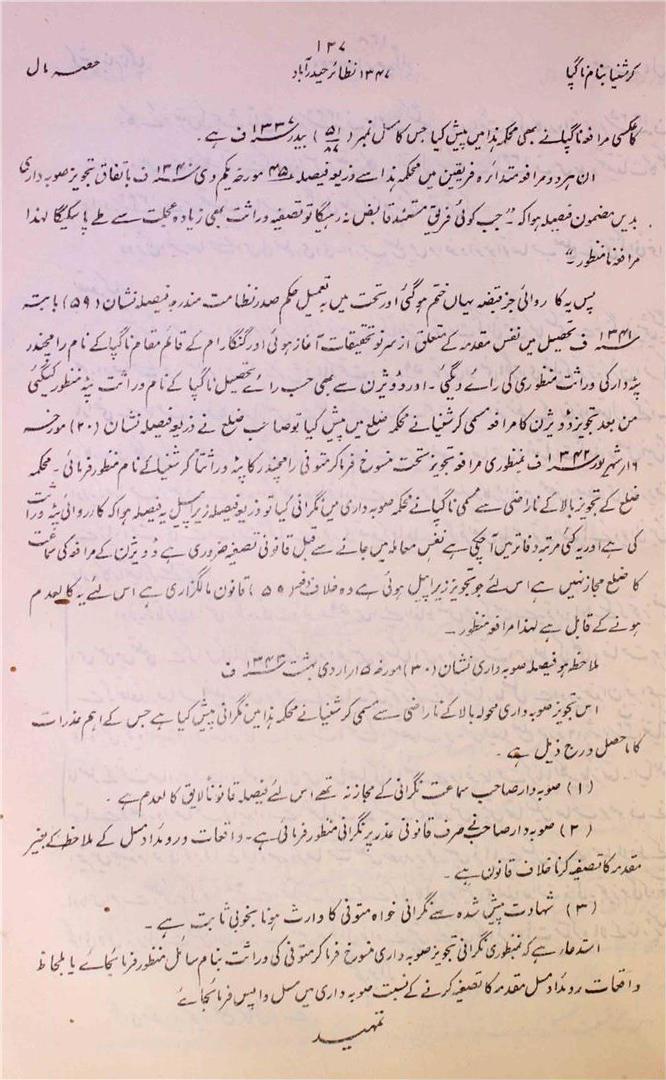 ۱۳۷
کرشنیا بنام ناگیا ۱۳۴۷ نظائر حیدرآباد حصہ مال
کا عکسی مرافعہ ناگیا نے بھی محکمہ ہذا میں پیش کیا جس کا مسل نمبر (۵۱/۸۷) بیدر ۱۳۳۷ ف ہے۔
ان ہر دو مرافعہ متدائرہ فریقین میں محکمہ ہذا سے ذریعہ فیصلہ ۴۵ مورخہ یکم دی ۱۳۴۰ ف باتفاق تجویز صوبہ داری
بدیں مضمون فیصلہ ہوا کہ۔ "جب کوئی فریق مستفید قابض نہ رہیگا تو تصفیہ وراثت بھی زیادہ عجلت سے طے پا سکیگا لہذا
مرافعہ نامنظور"
پس یہ کاروائی جز قبضہ یہاں ختم ہو گئی اور تحت میں بہ تعمیل حکم صدر نظامت مندرجہ فیصلہ نشان (۵۹) بابتہ
۱۳۴۱ ف تحصیل میں نفس مقدمہ کے متعلق از سر نو تحقیقات آغاز ہوئی اور گنگارام کے قائم مقام ناگیا کے نام رامچندر
پٹہ دار کی وراثت منظوری کی رائے دیگئی۔ اور ڈویژن سے بھی حسب رائے تحصیل ناگیا کے نام وراثت پٹہ منظور کیگئی
من بعد تجویز ڈویژن کا مرافعہ مسمی کرشنیا نے محکمہ ضلع میں پیش کیا تو صاحب ضلع نے ذریعہ فیصلہ نشان (۲۰) مورخہ
۱۶ شہریور ۱۳۴۲ ف بمنظوری مرافعہ تجویز تحت منسوخ فرما کر متوفی رامچندر کا پٹہ وراثتاً کرشنیا کے نام منظور فرمائی۔ محکمہ
ضلع کے تجویز بالا کے ناراضی سے مسمی ناگیا نے محکمہ صوبہ داری میں نگرانی کیا تو ذریعہ فیصلہ زیر اپیل یہ فیصلہ ہوا کہ کاروائی پٹہ وراثت
کی ہے اور یہ کئی مرتبہ دفاتر میں آچکی ہے نفس معاملہ میں جانے سے قبل قانونی تصفیہ ضروری ہے ڈویژن کے مرافعہ کی سماعت
کا ضلع مجاز نہیں ہے اس لئے جو تجویز زیر اپیل ہوئی ہے وہ خلاف دفعہ ۵۹ قانون مالگزاری ہے اس لئے یہ کالعدم
ہونے کے قابل ہے لہذا مرافعہ منظور۔
ملاحظہ ہو فیصلہ صوبہ داری نشان (۳۰) مورخہ ۱۵ اردی بہشت ۱۳۴۳ ف
اس تجویز صوبہ داری محولہ بالا کے ناراضی سے مسمی کرشنیا نے محکمہ ہذا میں نگرانی پیش کیا ہے جس کے اہم عذرات
کا ماحصل درج ذیل ہے۔
(۱) صوبہ دار صاحب سماعت نگرانی کے مجاز نہ تھے اس لئے فیصلہ قانوناً لایق کالعدم ہے۔
(۲) صوبہ دار صاحب نے صرف قانونی عذر پر نگرانی منظور فرمائی ہے۔ واقعات و روئداد مسل کے ملاحظہ کے بغیر
مقدمہ کا تصفیہ کرنا خلاف قانون ہے۔
(۳) شہادت پیش شدہ سے نگرانی خواہ متوفی کا وارث ہونا بخوبی ثابت ہے۔
استدعا ہے کہ بمنظوری نگرانی تجویز صوبہ داری منسوخ فرما کر متوفی کی وراثت بنام سائل منظور فرمائیجائے یا بلحاظ
واقعات روئداد مسل مقدمہ کا تصفیہ کرنے کے نسبت صوبہ داری میں مسل واپس فرمائیجائے
تمہید